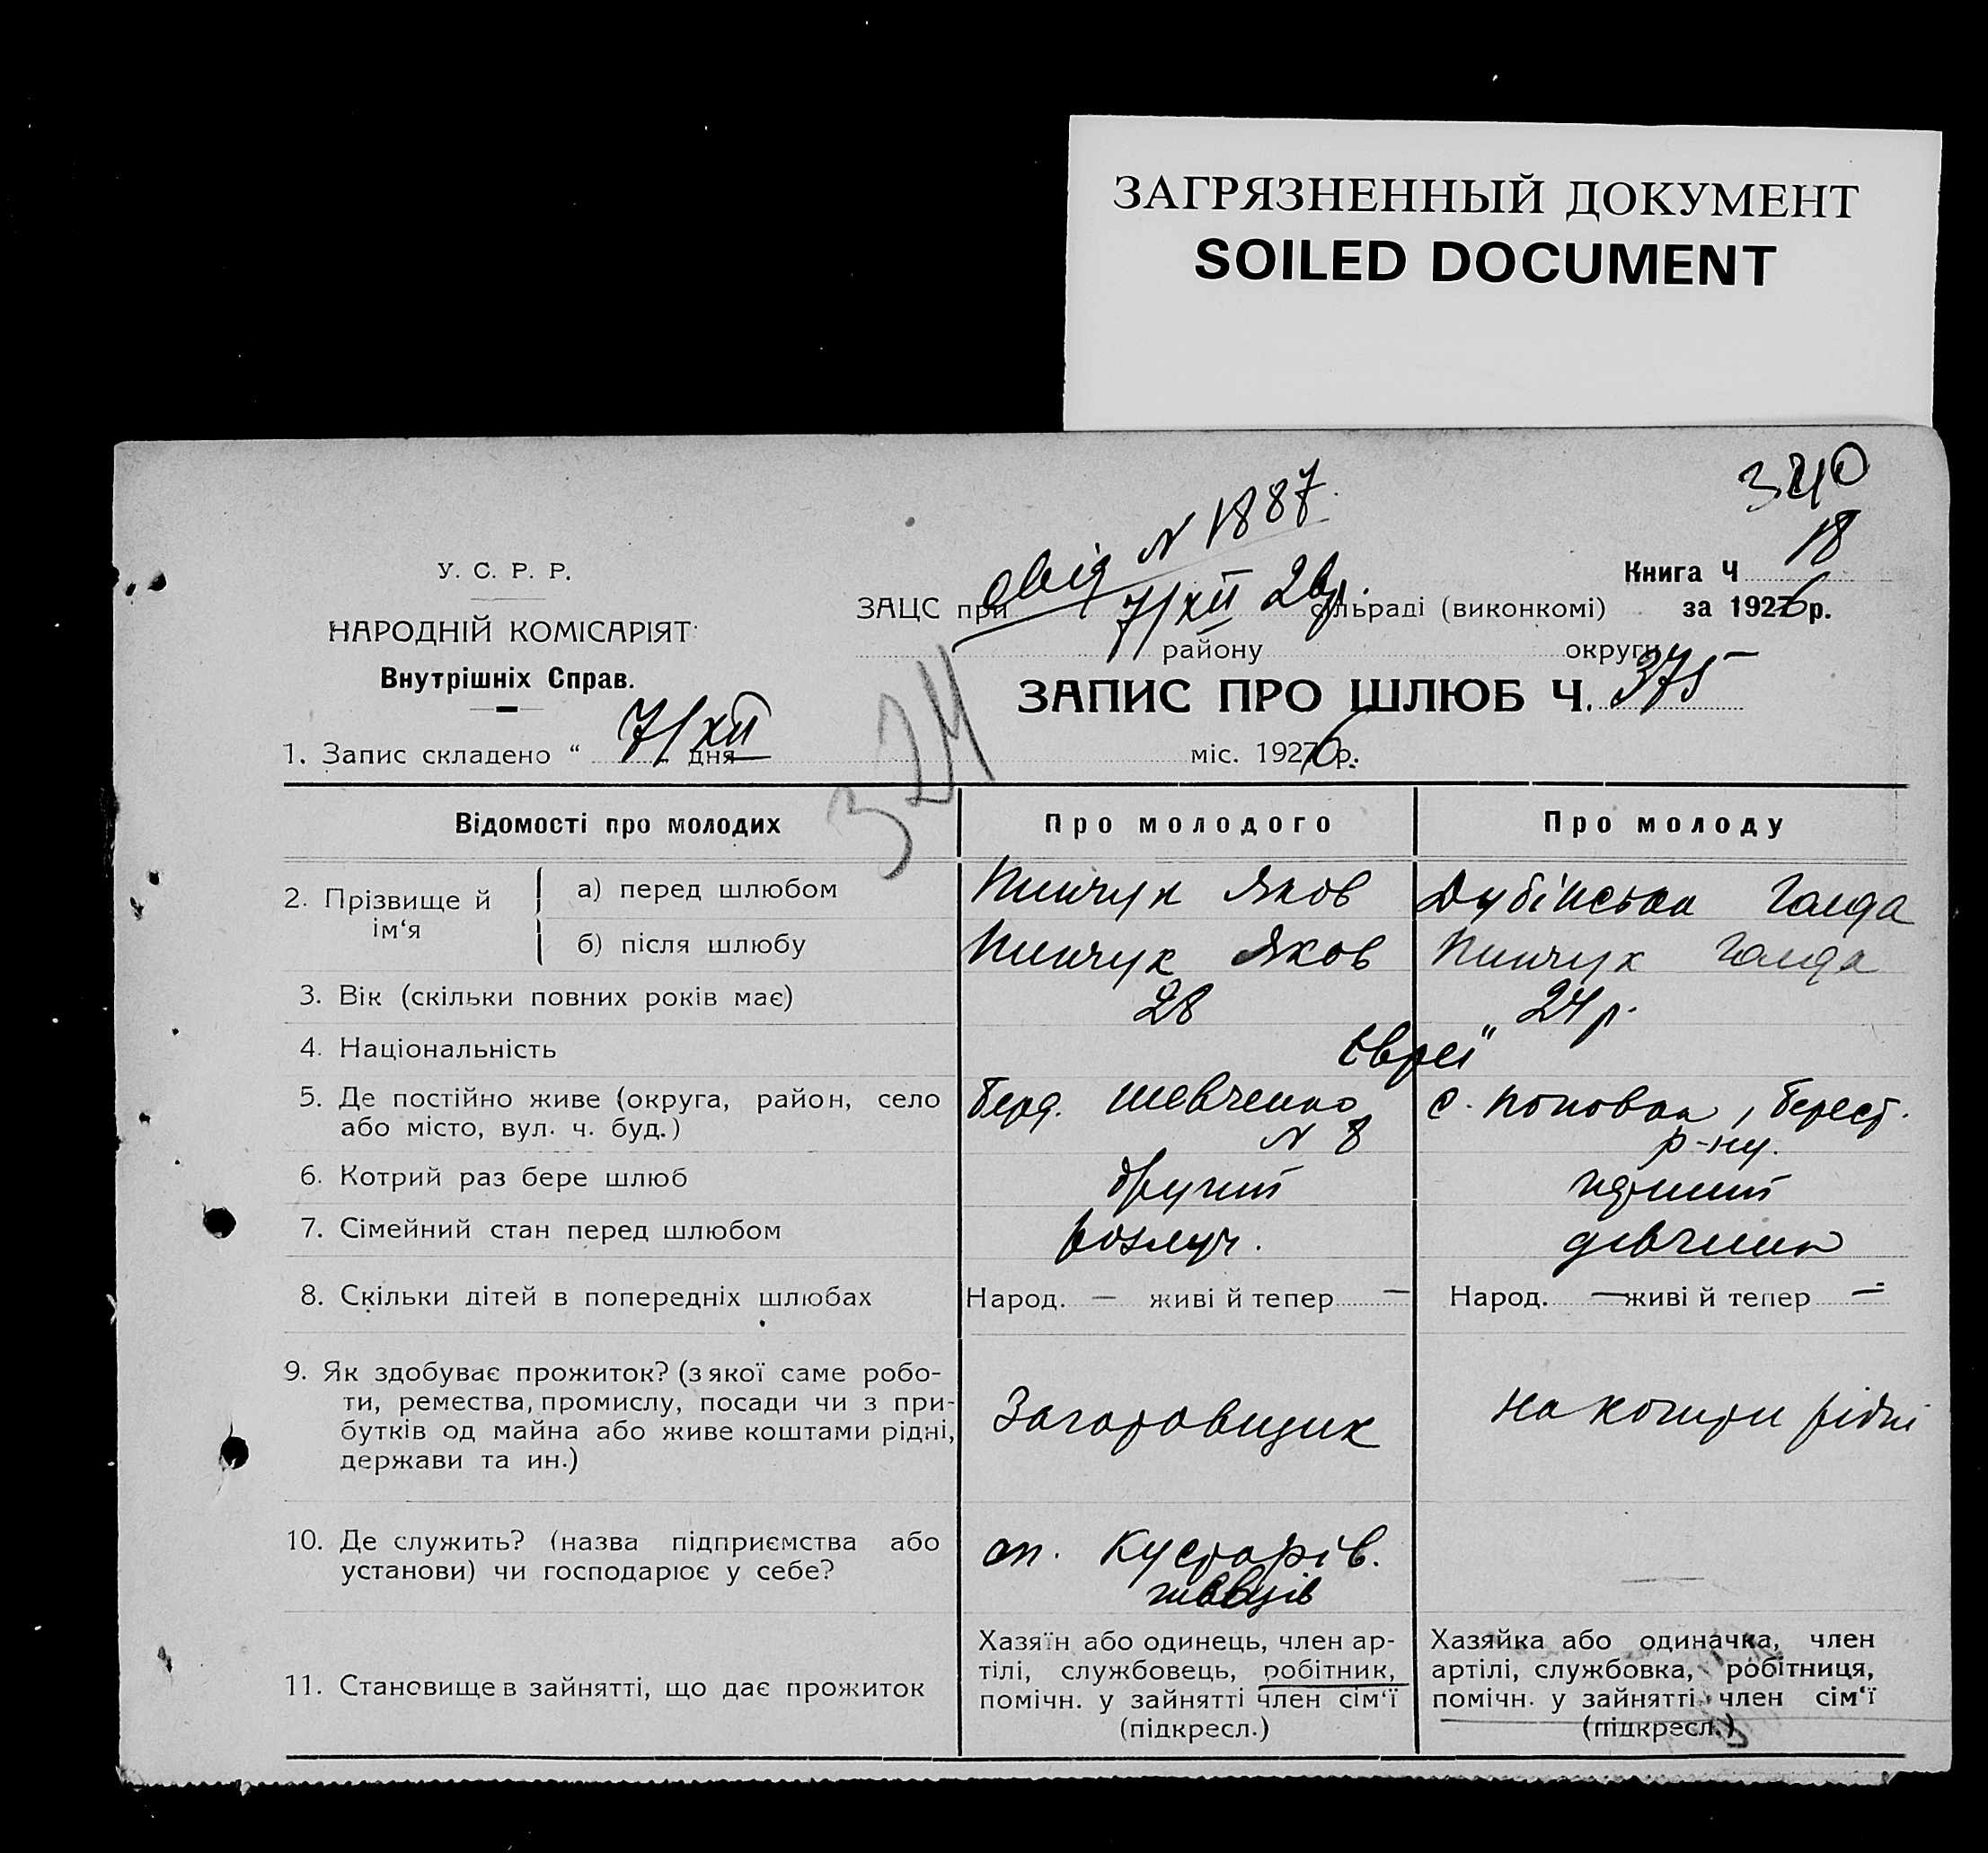 ЗАГРЯЗНЕННЫЙ ДОКУМЕНТ
SOILED DOCUMENT
340
У. С. Р. Р.
НАРОДНІЙ КОМІСАРІЯТ
Внутрішніх Справ.
N 1887.
7/XII 26р.
Книга Ч 18
ЗАЦС при сільраді (виконкомі) за 1926 р.
району округи
ЗАПИС ПРО ШЛЮБ Ч. 375
324
1. Запис складено “ 7/XII дня міс. 1926 р.
Відомості про молодих Про молодого Про молоду
2. Прізвище й ім‘я а) перед шлюбом Пинчук Яков Дубінська Голда
б) після шлюбу Пинчук Яков Пинчук Голда
3. Вік (скільки повних років має) 28 24 р.
4. Національність Євреї
5. Де постійно живе (округа, район, село Берд. Шевченко с. Поповка, Берест.
або місто, вул. ч. буд.) N 8 р-ну.
6. Котрий раз бере шлюб другий перший
7. Сімейний стан перед шлюбом розлуч. дівчина
8. Скільки дітей в попередніх шлюбах Народ. — живі й тепер — Народ. — живі й тепер —
9. Як здобуває прожиток? (з якої саме робо-
ти, ремества, промислу, посади чи з при- Заготовщик на кошти рідні
бутків од майна або живе коштами рідні,
держави та ин.)
10. Де служить? (назва підприємства або Кустарів. —
установи) чи господарює у себе? шевців
11. Становище в зайнятті, що дає прожиток
Хазяїн або одинець, член ар-
тілі, службовець, робітник,
помічн. у зайнятті член сім‘ї
(підкресл.)
Хазяйка або одиначка, член
артілі, службовка, робітниця,
помічн. у зайнятті член сім‘ї
(підкресл.)